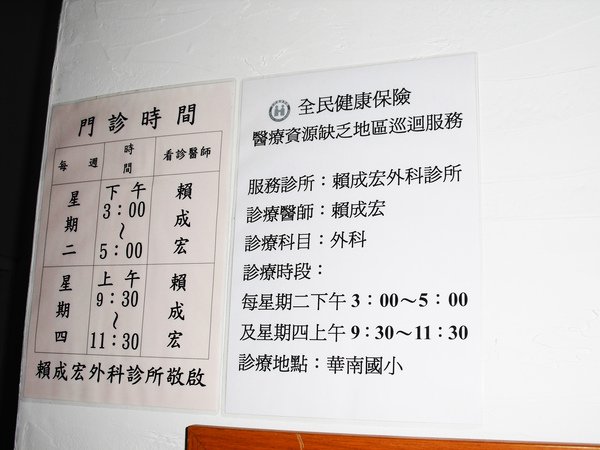 門診時間
每週 時間 看診醫師
星期二 下午3：00～5：00 賴成宏
星期四 上午9：30～11：30 賴成宏
賴成宏外科診所敬啟
全民健康保險
醫療資源缺乏地區巡迴服務
服務診所：賴成宏外科診所
診療醫師：賴成宏
診療科目：外科
診療時段：
每星期二下午 3：00～5：00
及星期四上午 9：30～11：30
診療地點：華南國小